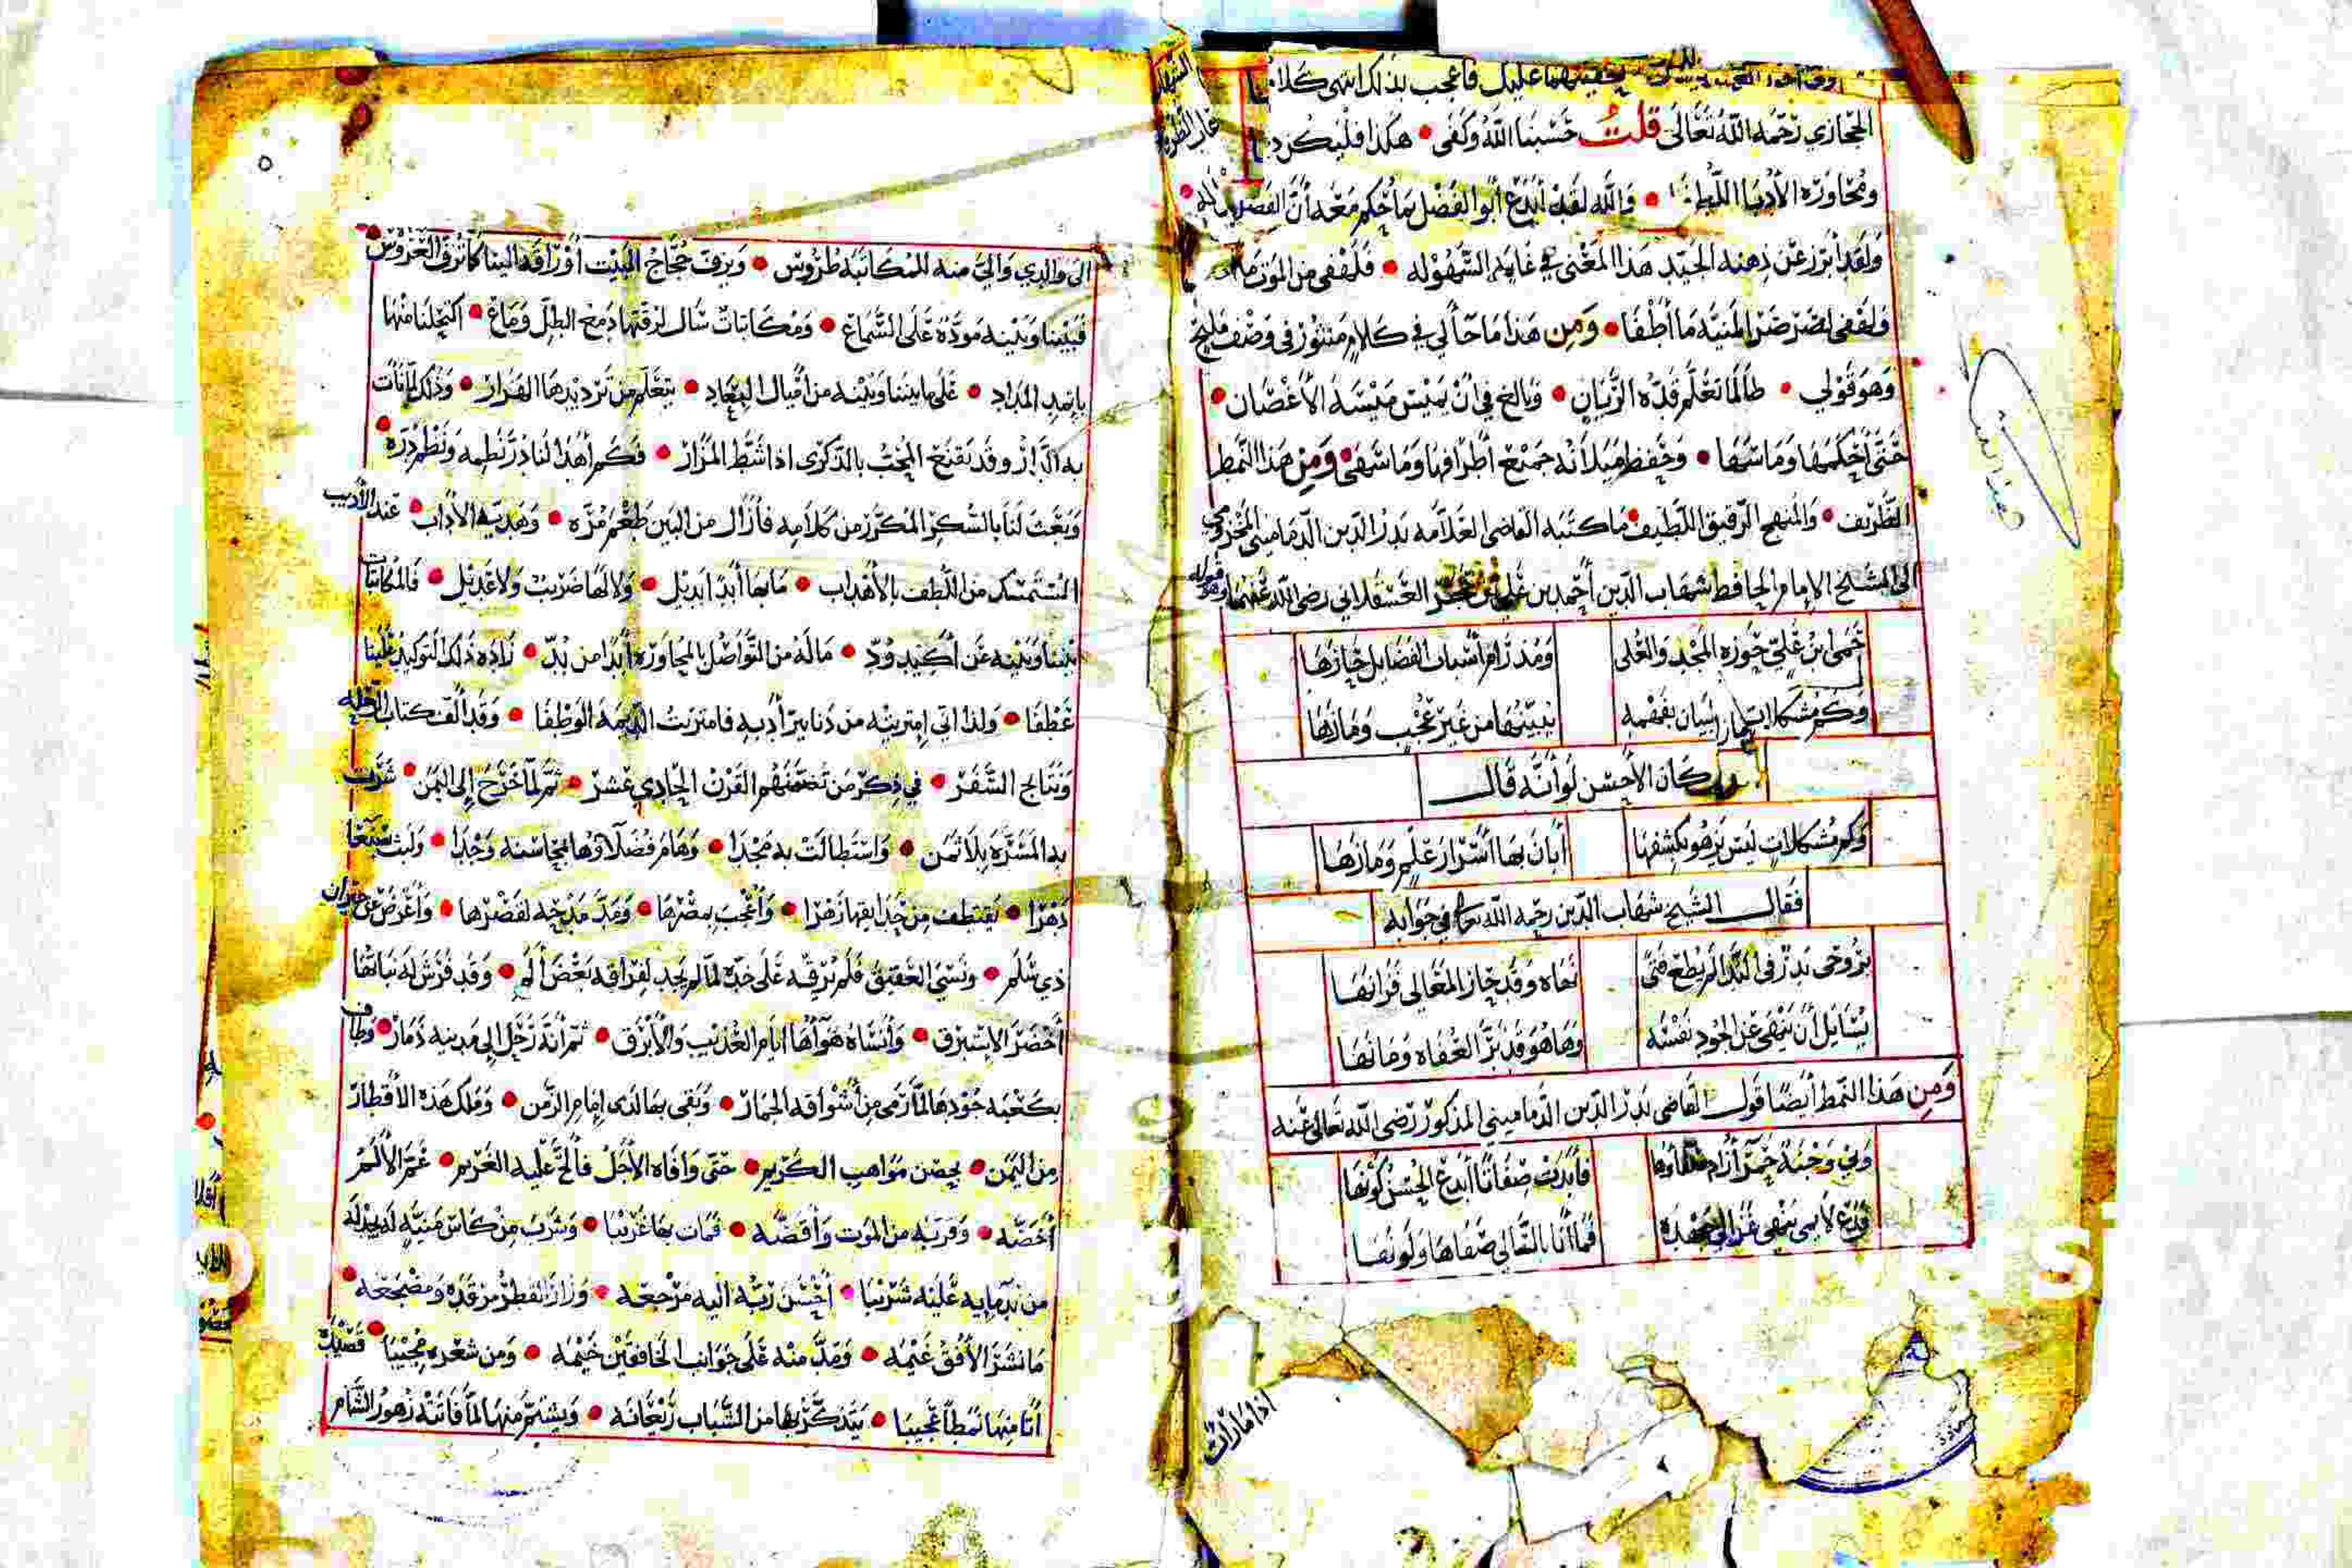 عليك فاعجب لذلك انتهى كلام
الحجازي رحمه الله تعالى قلت حسبنا الله وكفى هكذا فليكن
ومحاورة الأدبا اللطفا والله لقد أبدع أبو الفضل
ولقد أبرز عن ذهنه الجيد هذا المعنى في غاية السهولة فلهفي من الموت
ولهفي لضرر المنية ما أطفا ومن هذا ما جا لي في كلام منثور في وصف مليح
وهو قولي طالما تعلم قده الزيان وبالغ في أن يميس ميسة الأغصان
حتى أحكمها وما سها وحفظ ميلانه جميع أطرافها وما سها ومن هذا النمط
الظريف والمنهج الرقيق اللطيف ما كتبه القاضي العلامه بدر الدين الدماميني المخزومي
الى الشيخ الإمام الحافظ شهاب الدين أحمد بن علي بن حجر العسقلاني رضي الله عنهما وهو قوله
حمى ابن علي حوزة المجد والعلى ومذ رام أسباب الفضايل حازها
وكم مشكلات ببيان بفهمه يبينها من غير عجب وما زها
كان الأحسن لو أنه قال
وكم مشكلات ليس يزهو بكشفها أبان بها أسرار علم وما زها
فقال الشيخ شهاب الدين رحمه الله تعالى في جوابه
بروحي بدر في الندا لم يطع فتى نهاه وقد حاز المعالي فزانها
يسايل أن ينهى عن الجود نفسه وها هو قد بر العفاة وما نها
ومن هذا النمط أيضا قول القاضي بدر الدين الدماميني المذكور رضي الله تعالى عنه
ولي وجنة حمر فأبدت صفاتا أبدع الحسن كونها
فما أنا بالسالي صفاها ولو نها
اذا ما رأت
الى والدي والي منه للمكاتبة طروس ويزف حجاج البيت أوراقه الينا كما تزف العروس
فبيننا وبينه مودة على السماع ومكاتبات سال لرقتها دمع الطل وماع اكتحلنا منها
باثمد المداد على ما بيننا وبينه من أميال البعاد يتعلم من ترديدها الهزار وذلك لما نات
به الدار وقد يقنع المحب بالذكرى اذا شط المزار فكم أهدا لنا در نظمه ونظم دره
وبعث لنا بالسكر المكرر من كلامه فأزال من البين طعم مره وهدية الاداب عند الأديب
المستمسك من اللطف بالأهداب ما بها أبدا بديل ولا لها ضريب ولا عديل فالمكاتبات
بيننا وبينه عن أكيد ود ما له من التواصل بالمحاورة أبدا من بد زاده ذلك التوكيد علينا
عطفا ولذا اني امتريته من دنانير أدبه فامتريت الديمة الوطفا وقد ألف كتاب الرحله
ونتايج السفر في ذكر من تضمنهم القرن الحادي عشر ثم لما خرج إلى اليمن شرت
به المسرة بلا ثمن واستطالت به مجدا وهام فضلاؤها بمحاسنه وجدا ولبث بصنعا
دهرا يقتطف من حدايقها زهرا وأعجب بمصرها ومد مدحه لقصرها وأعرض عن جيران
ذي سلم ونسي العقيق فلم يرقه على خده لما لم يجد لفراقه بعض ألم وقد فرش له نباتها
أخضر الاستبرق وأنساه هوآها أيام العذيب والأبرق ثم أنه رحل إلى مدينة ذمار وطاف
بكعبة جودها لما رمى من أشواقه الجمار وبقى بها لدى إمام الزمن وملك هذه الأقطار
من اليمن بحصن مواهب الكريم حتى وافاه الأجل فألح عليه الغريم
وقربه من الموت وأقصه فمات بها غريبا وشرب من كاس منية لم يجد له
من ندمايه عليه شريبا أحسن ربه اليه مرجعه وزار القطر مرقده ومضجعه
ما نشر الأفق غيمه ومد منه على جوانب الخافقين خيمه ومن شعره مجيبا قصيدة
أتا منها نمطا عجيبا يتذكر بها من الشباب ريعانه ويشتم منها لما فاتته زهور الشام